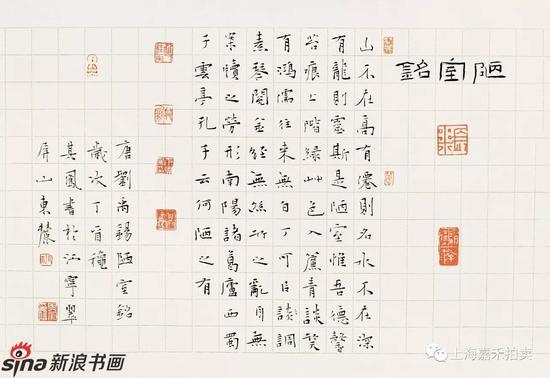 陋室銘
山不在高有僊則名水不在深
有龍則靈斯是陋室惟吾德馨
苔痕上階綠艸色入簾青談笑
有鴻儒往來無白丁可㠯談調
素琴閱金經無絲竹之亂耳無
案牘之勞形南陽諸葛廬西蜀
子雲亭孔子云何陋之有
唐劉禹錫陋室銘
歲次丁酉穐
其鳳書於江寧翠
屏山東麓
sina新浪书画
上海嘉禾拍卖